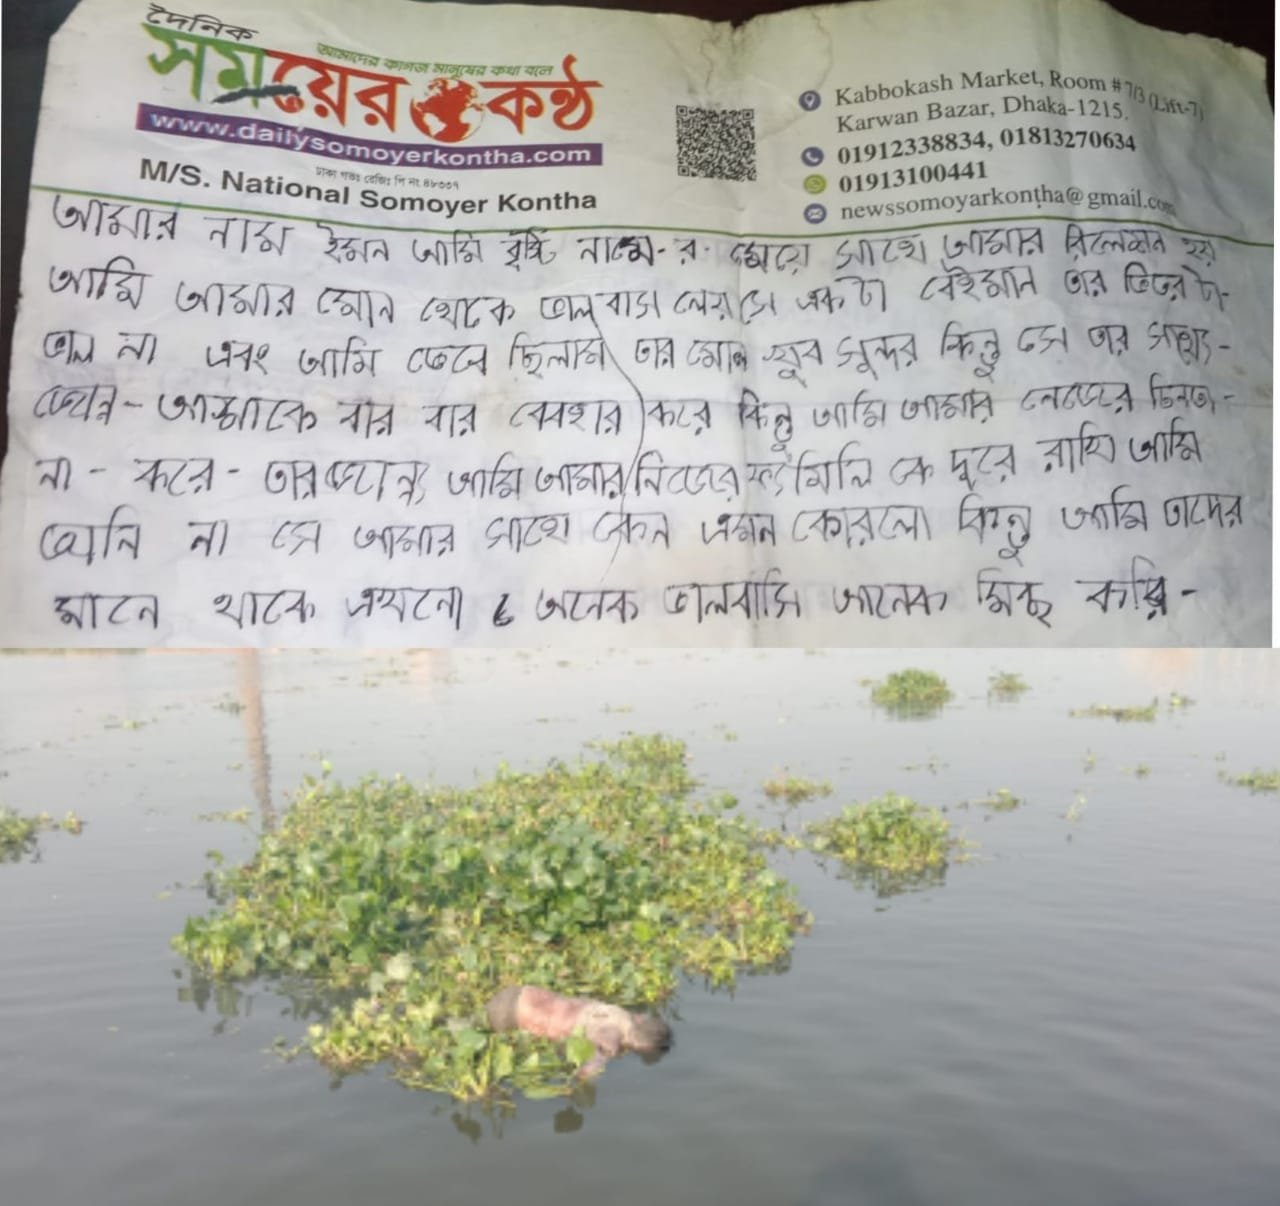 দৈনিক
আমাদের কাগজ মানুষের কথা বলে
সময়ের কণ্ঠ
www.dailysomoyerkontha.com
ঢাকা গভঃ রেজিঃ পি নং ৪৮৩৩৭
M/S. National Somoyer Kontha
Kabbokash Market, Room # 7/3 (Lift-7)
Karwan Bazar, Dhaka-1215.
01912338834, 01813270634
01913100441
newssomoyarkontha@gmail.com
আমার নাম ইমন আমি বৃষ্টি নামে-র মেয়ে সাথে আমার রিলেশন হয়
আমি আমার মোন থেকে ভাল বাসা সে একটা বেইমান তার ভিতর টা-
ভাল না এবং আমি ভেবে ছিলাম তার মোন খুব সুন্দর কিন্তু সে তার
আমাকে বার বার বেবহার করে কিন্তু আমি আমার নেজের চিনতা-
না - করে - তার জোন্য আমি আমার নিজের ফ্যমিলি কে দুরে রাখি আমি
যেনি না সে আমার সাথে কেন এমন কোরলো কিন্তু আমি তাদের
মানে থাকে এখনো অনেক ভালবাসি অনেক মিছ করি -